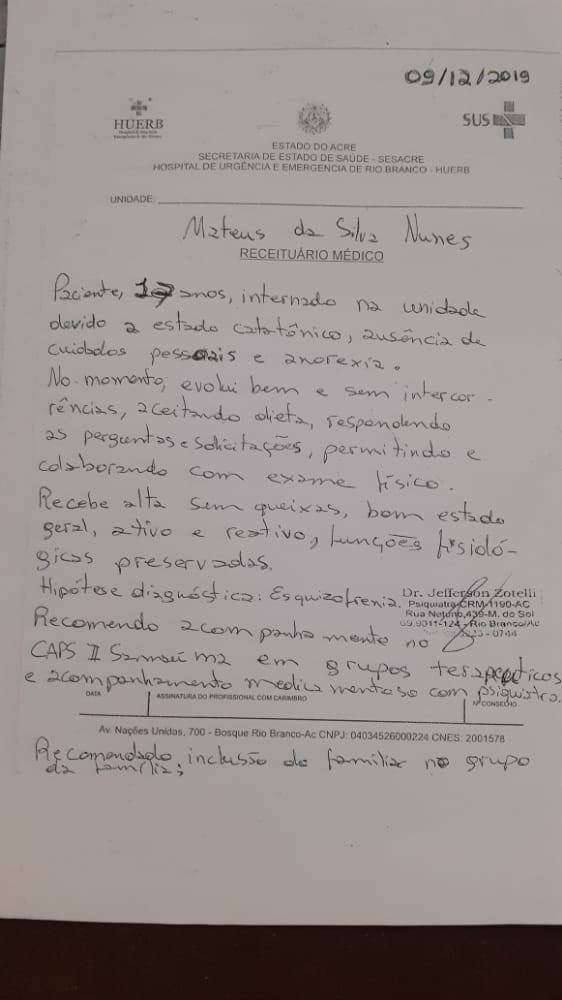 09/12/2019
HUERB
SUS
ESTADO DO ACRE
SECRETARIA DE ESTADO DE SAÚDE - SESACRE
HOSPITAL DE URGÊNCIA E EMERGENCIA DE RIO BRANCO - HUERB
UNIDADE:
Mateus da Silva Nunes
RECEITUÁRIO MÉDICO
Paciente, 17 anos, internado na unidade
devido a estado catatônico, ausência de
cuidados pessoais e anorexia.
No momento, evolui bem e sem intercor-
rências, aceitando dieta, respondendo
as perguntas e solicitações, permitindo e
colaborando com exame físico.
Recebe alta sem queixas, bom estado
geral, ativo e reativo, funções fisioló-
gicas preservadas.
Hipótese diagnóstica: Esquizofrenia.
Dr. Jefferson Zotelli
Psiquiatra-CRM-1190-AC
Rua Netuno,439-M. do Sol
69.9011-124 - Rio Branco/Ac
- 0744
Recomendo acompanhamento no
CAPS II Samaúma em grupos terapeuticos
e acompanhamento medicamentoso com psiquiatra.
DATA
ASSINATURA DO PROFISSIONAL COM CARIMBO
Nº CONSELHO
Av. Nações Unidas, 700 - Bosque Rio Branco-Ac CNPJ: 04034526000224 CNES: 2001578
Recomendado inclusão do familiar no grupo
da família;